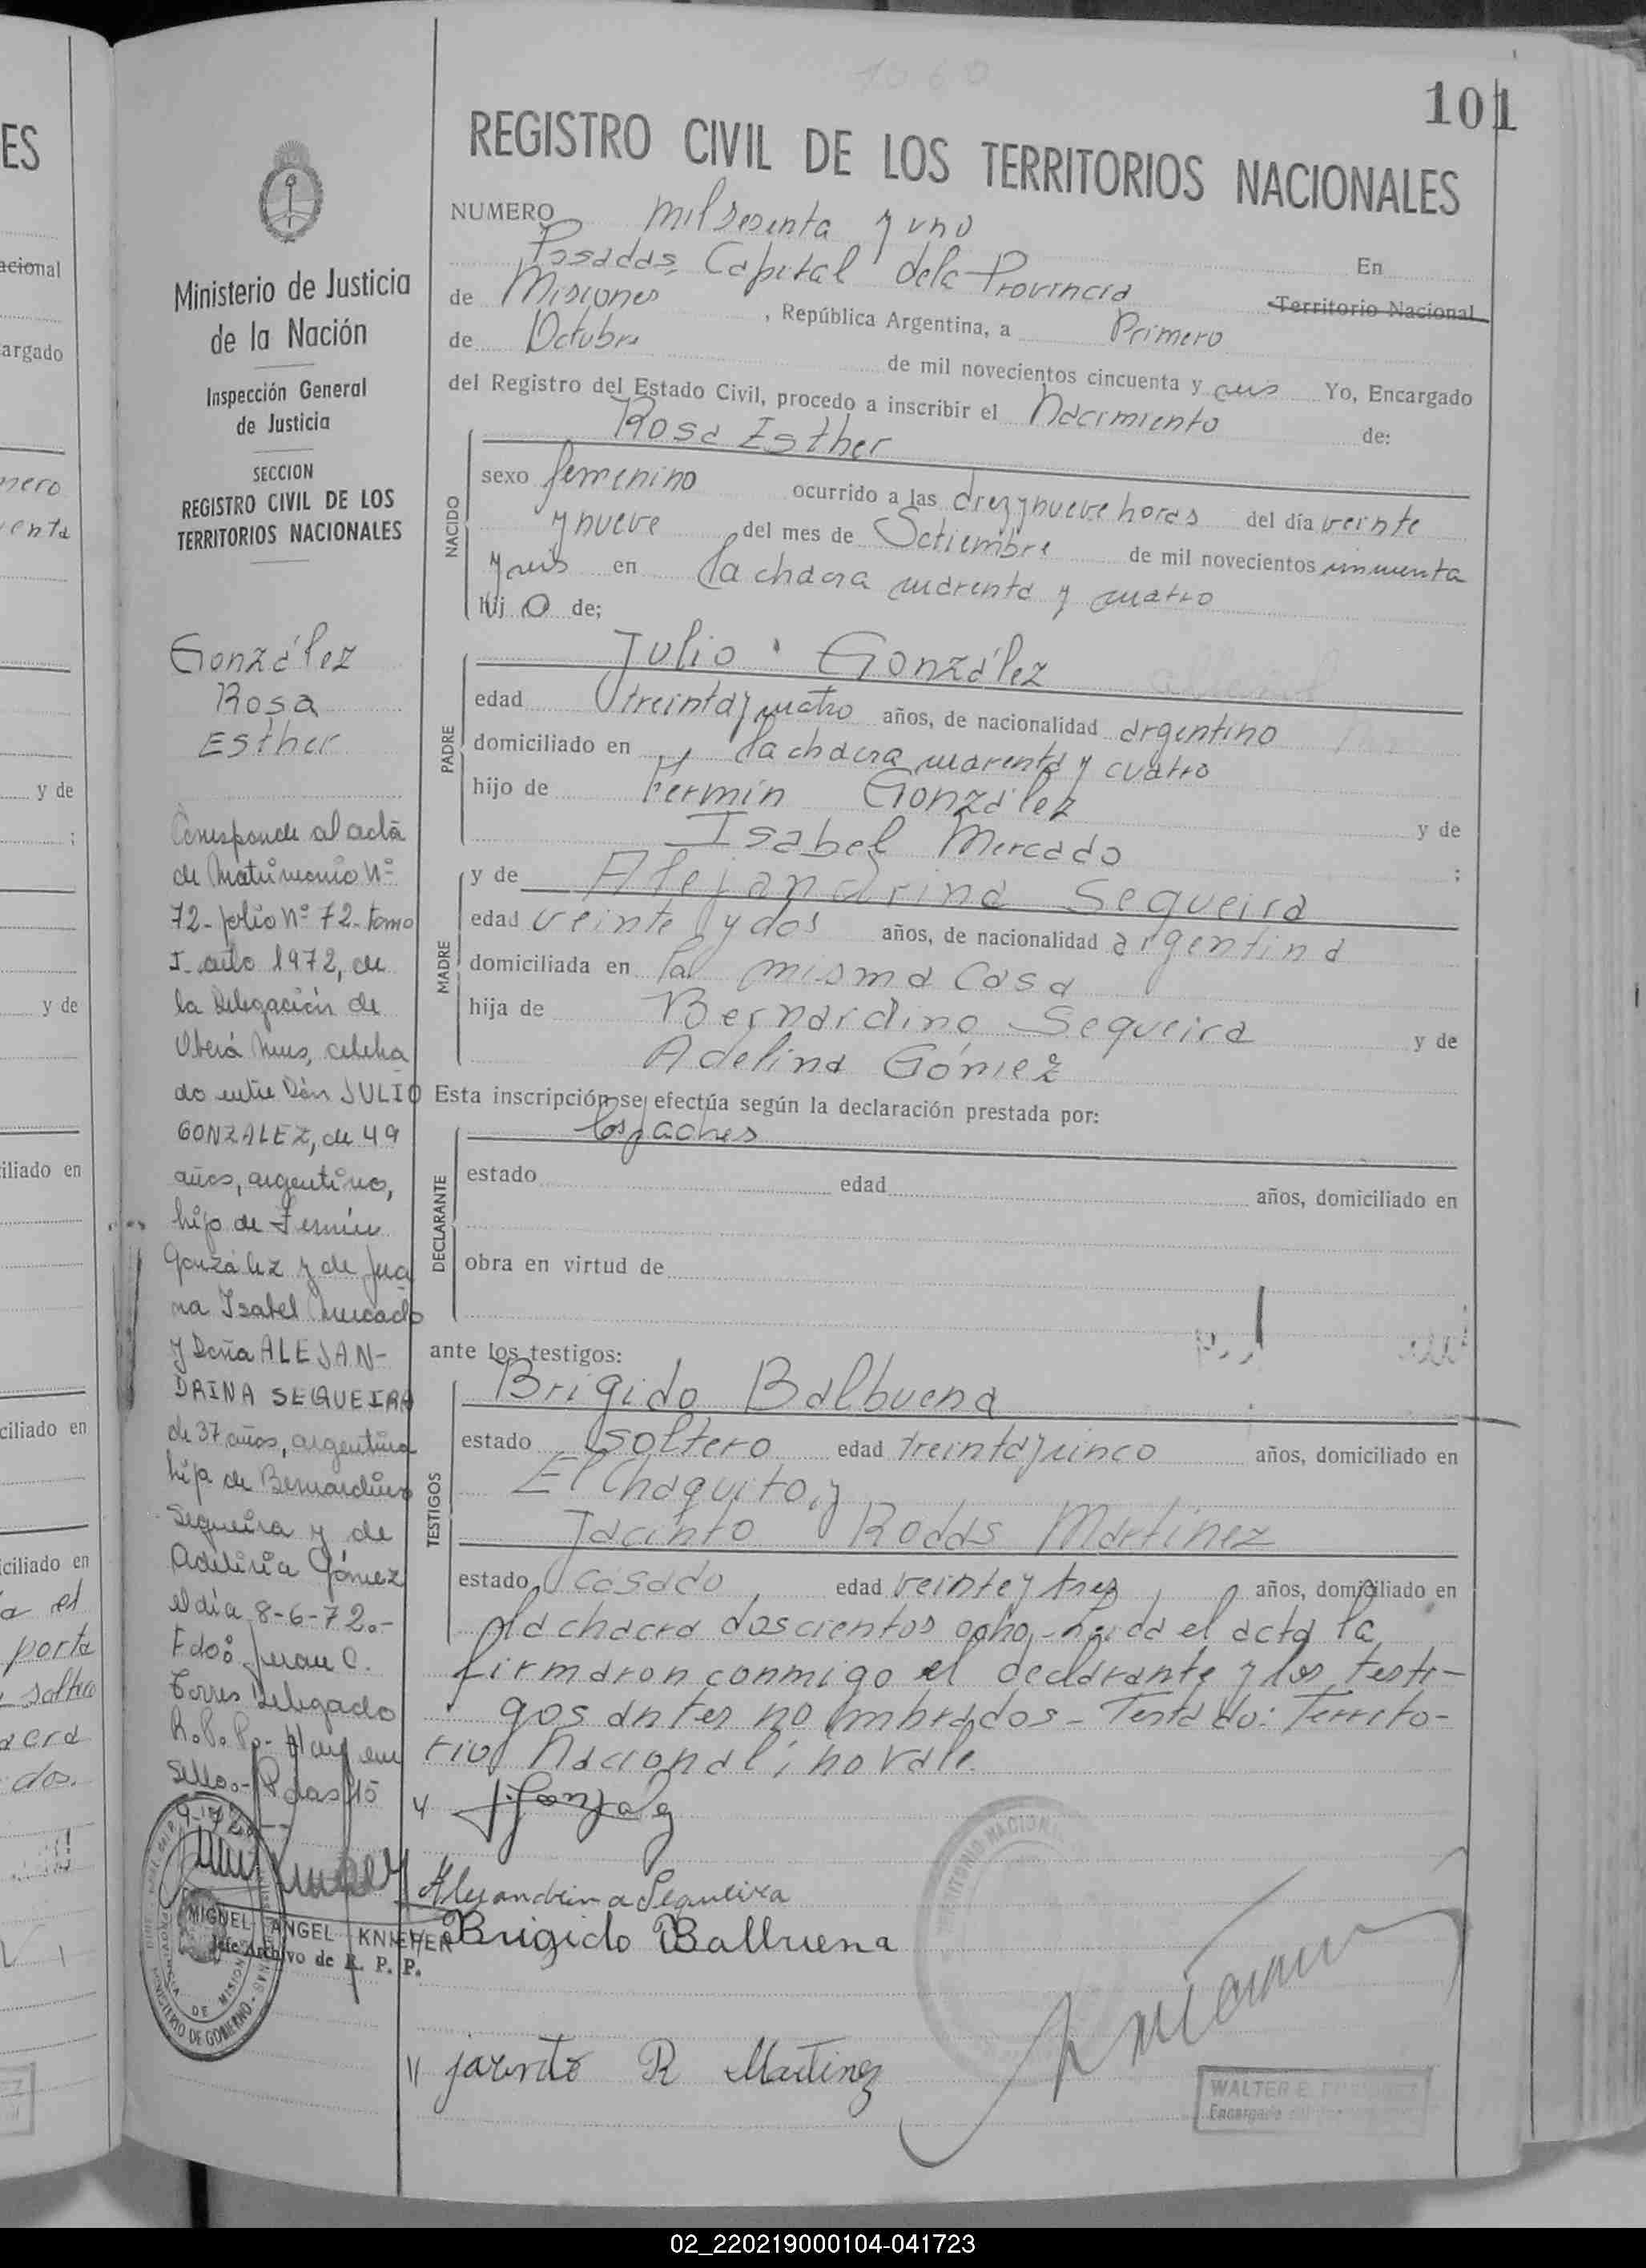 101
REGISTRO CIVIL DE LOS TERRITORIOS NACIONALES
NUMERO mil sesenta y uno
En
Posadas, Capital de la Provincia
Territorio Nacional
de Misiones, República Argentina, a Primero
de Octubre de mil novecientos cincuenta y seis Yo, Encargado
del Registro del Estado Civil, procedo a inscribir el Nacimiento de:
NACIDO
Rosa Esther
sexo femenino ocurrido a las diez y nueve horas del día veinte
y nueve del mes de Setiembre de mil novecientos cincuenta
y seis en la chacra cuarenta y cuatro
hij o de;
PADRE
Julio González
edad treinta y cuatro años, de nacionalidad argentino
domiciliado en la chacra cuarenta y cuatro
hijo de Fermín González y de
Isabel Mercado ;
MADRE
y de Alejandrina Sequeira
edad veinte y dos años, de nacionalidad argentina
domiciliada en la misma casa
hija de Bernardino Sequeira y de
Adelina Gómez
Esta inscripción se efectúa según la declaración prestada por:
DECLARANTE
los padres
estado edad años, domiciliado en
obra en virtud de
ante los testigos:
TESTIGOS
Brigido Balbuena
estado soltero edad treinta y cinco años, domiciliado en
El Chaquito, y
Jacinto Rodas Martínez
estado casado edad veinte y tres años, domiciliado en
la chacra doscientos ocho,- Leída el acta la
firmaron conmigo el declarante y los testi-
gos antes nombrados - Testado: Territo-
rio Nacional; no vale.
J. Gonzalez
Alejandrina Sequeira
Brigido Balbuena
jacinto R Martinez
WALTER E.
Encargado
Ministerio de Justicia
de la Nación
Inspección General
de Justicia
SECCION
REGISTRO CIVIL DE LOS
TERRITORIOS NACIONALES
González
Rosa
Esther
Corresponde al acta
de Matrimonio Nº
72- folio Nº 72- tomo
I- año 1972, de
la Delegación de
Oberá Mnes, celebra
do entre Dón JULIO
GONZALEZ, de 49
años, argentino,
hijo de Fermín
González y de Jua
na Isabel Mercado
y Doña ALEJAN-
DRINA SEQUEIRA
de 37 años, argentina
hija de Bernardino
Sequeira y de
Adelina Gómez
el día 8-6-72.-
Fdo: Juan C.
Torres Delegado
R.P.P.- Hay un
Sello.- Pdas 15
9-72.--
MIGUEL ANGEL KNIEHER
Jefe Archivo de R. P. P.
MINISTERIO DE GOBIERNO
DE MISIONES
ES
acional
argado
nero
enta
y de
;
y de
iliado en
ciliado en
iciliado en
a el
porta
soltero
acra
dos.
02_220219000104-041723